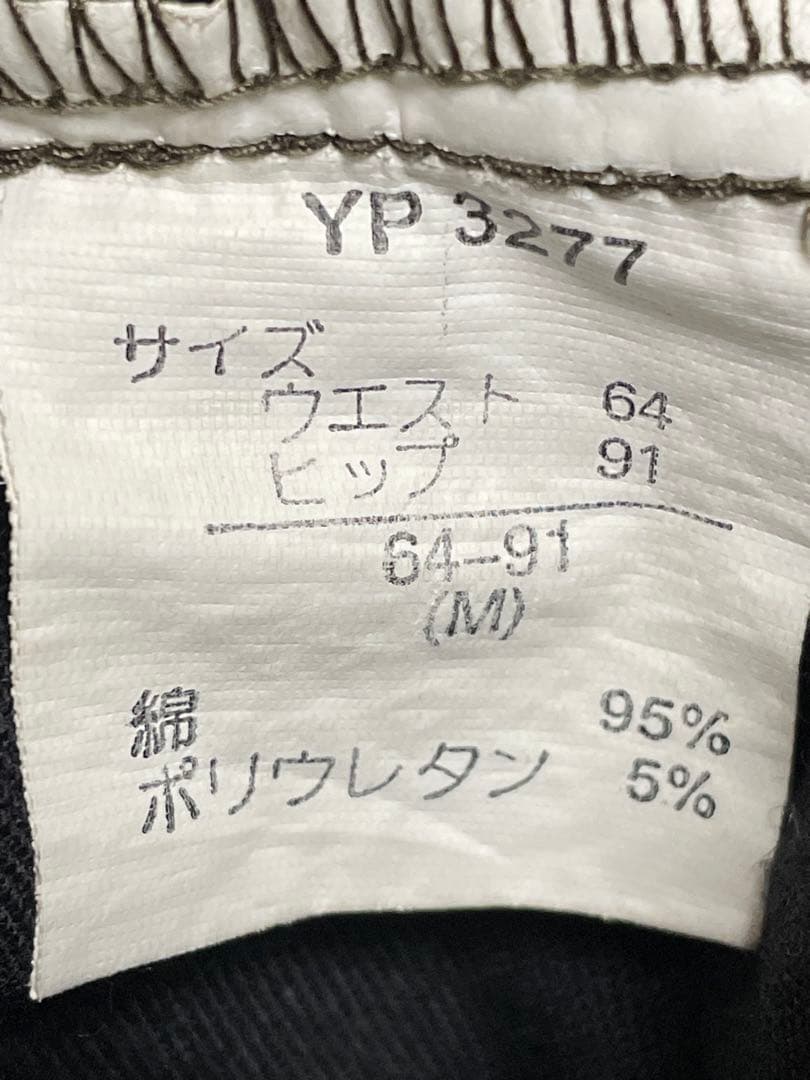 YP 3277
サイズ
ウエスト 64
ヒップ 91
64-91
(M)
綿 95%
ポリウレタン 5%